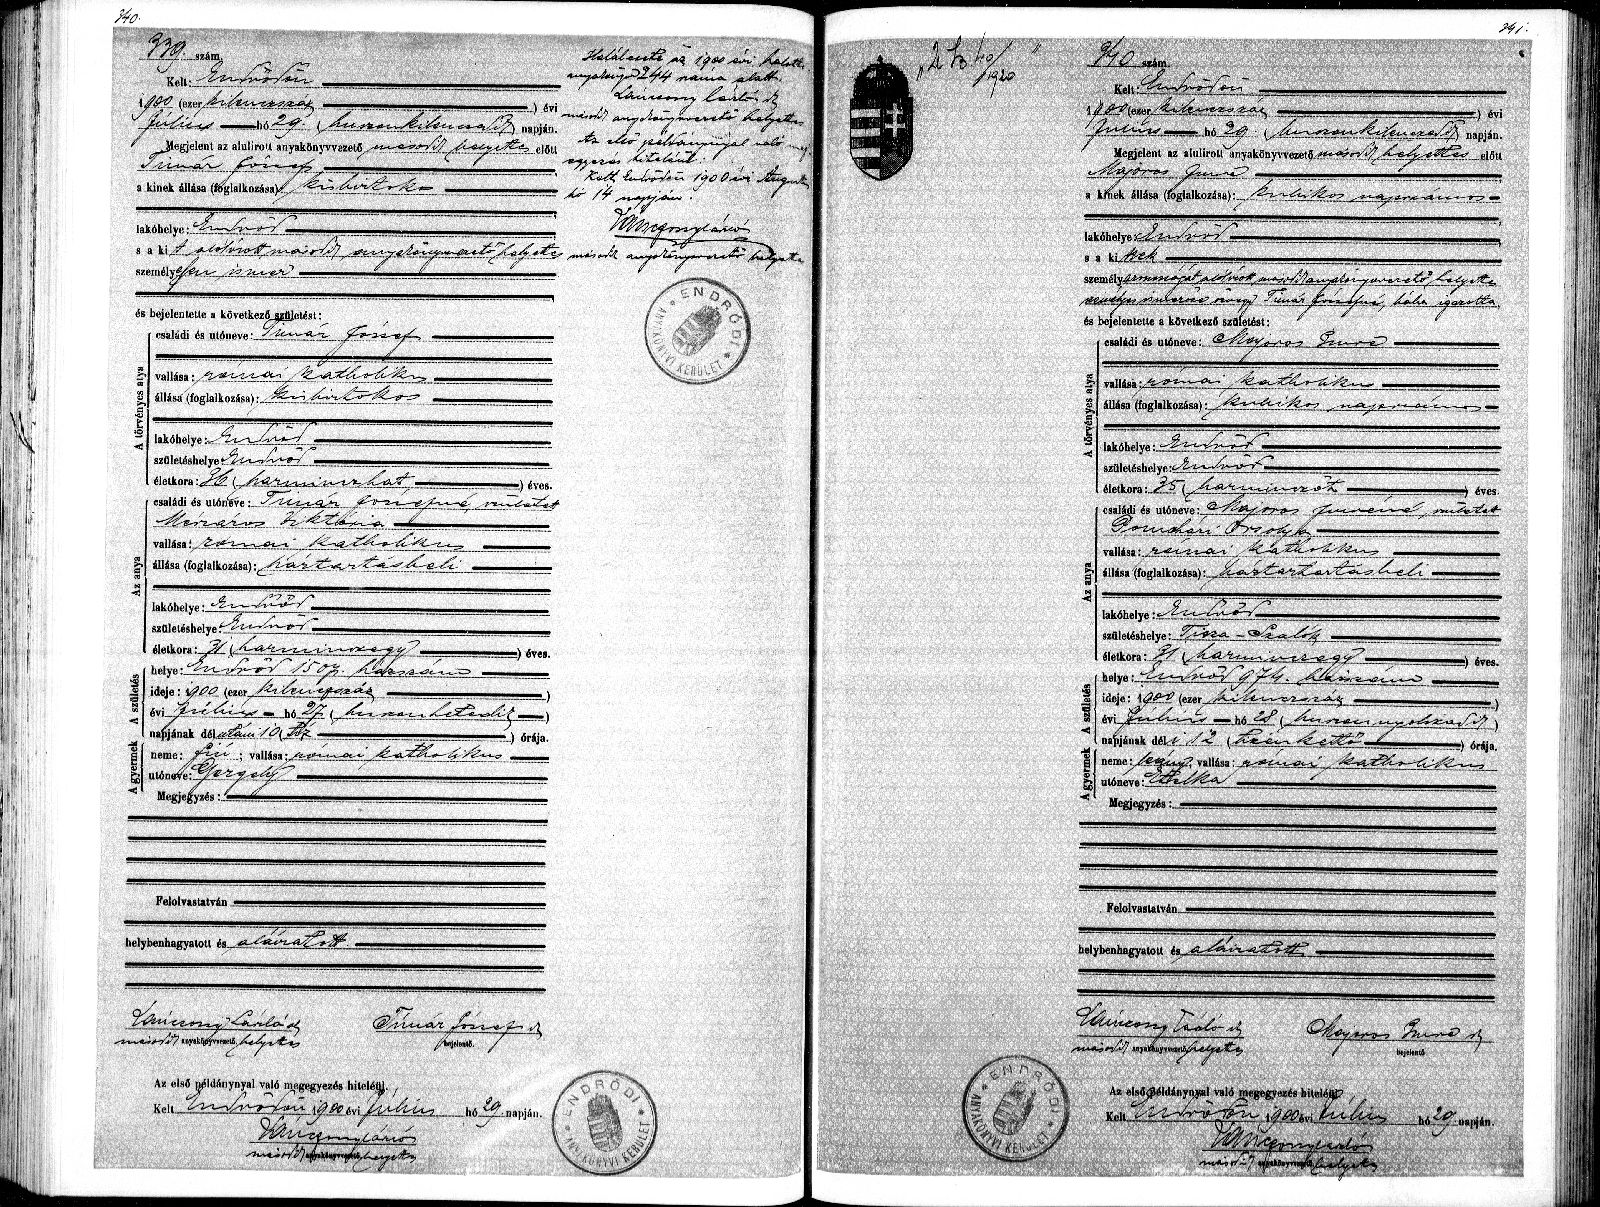 340.
339. szám.
Kelt: Endrődön
1900 (ezer kilenczszáz) évi
Július hó 29. (huszonkilenczedik) napján.
Megjelent az alulirott anyakönyvvezető másodh helyettes előtt
Timár József
a kinek állása (foglalkozása): kisbirtokos
lakóhelye: Endrőd
s a kit alulírott másodh anyakönyvvezető helyettes
személyesen ismer
és bejelentette a következő születést:
A törvényes atya
családi és utóneve: Timár József
vallása: római katholikus
állása (foglalkozása): kisbirtokos
lakóhelye: Endrőd
születéshelye: Endrőd
életkora: 36 (harminczhat) éves.
Az anya
családi és utóneve: Timár Józsefné, született
Mészáros Viktória
vallása: római katholikus
állása (foglalkozása): háztartásbeli
lakóhelye: Endrőd
születéshelye: Endrőd
életkora: 31 (harminczegy) éves.
A születés
helye: Endrőd 1507. házszám
ideje: 1900 (ezer kilenczszáz)
évi Július hó 27 (huszonhetedik)
napjának délutáni 10 (tíz) órája.
A gyermek
neme: fiú; vallása: római katholikus
utóneve: Gergely
Megjegyzés:
Felolvastatván
helybenhagyatott és aláiratott
Lánczony László
másodh anyakönyvvezető helyettes
Timár József
bejelentő.
Az első példánynyal való megegyezés hiteléül.
Kelt Endrődön 1900 évi Július hó 29 napján.
Lánczony László
másodh anyakönyvvezető helyettes
ENDRŐDI ANYAKÖNYVI KERÜLET
Halálesete az 1900 évi halotti
anyakönyv 244 száma alatt.
Lánczony László
másodh anyakönyvvezető helyettes
Az első példánynyal való meg-
egyezés hiteléül.
Kelt Endrődön 1900 évi Augusztus
hó 14 napján.
Lánczony László
másodh anyakönyvvezető helyettes
ENDRŐDI ANYAKÖNYVI KERÜLET
341.
340 szám.
Kelt: Endrődön
1900 (ezer kilenczszáz) évi
Július hó 29 (huszonkilenczedik) napján.
Megjelent az alulirott anyakönyvvezető másodh helyettes előtt
Majoros Imre
a kinek állása (foglalkozása): kubikos napszámos
lakóhelye: Endrőd
s a kinek
személyazonosságát alulírott másodh anyakönyvvezető helyettes
személyes ismerőse özvegy Timár Józsefné, bába igazolta,
és bejelentette a következő születést:
A törvényes atya
családi és utóneve: Majoros Imre
vallása: római katholikus
állása (foglalkozása): kubikos napszámos
lakóhelye: Endrőd
születéshelye: Endrőd
életkora: 35 (harminczöt) éves.
Az anya
családi és utóneve: Majoros Imréné, született
Orsolya
vallása: római katholikus
állása (foglalkozása): háztartásbeli
lakóhelye: Endrőd
születéshelye: Tisza-Szalók
életkora: 31 (harminczegy) éves.
A születés
helye: Endrőd 974. házszám
ideje: 1900 (ezer kilenczszáz)
évi Július hó 28 (huszonnyolczadik)
napjának déli 12 (tizenkettő) órája.
A gyermek
neme: leány, vallása: római katholikus
utóneve: Etelka
Megjegyzés:
Felolvastatván
helybenhagyatott és aláiratott
Lánczony László
másodh anyakönyvvezető helyettes
Majoros Imre
bejelentő
Az első példánynyal való megegyezés hiteléül
Kelt Endrődön 1900 évi Július hó 29 napján.
Lánczony László
másodh anyakönyvvezető helyettes
ENDRŐDI ANYAKÖNYVI KERÜLET